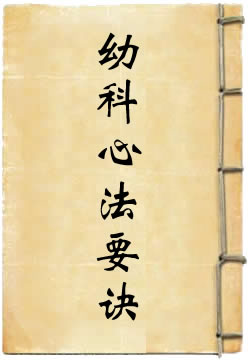 幼科心法要诀